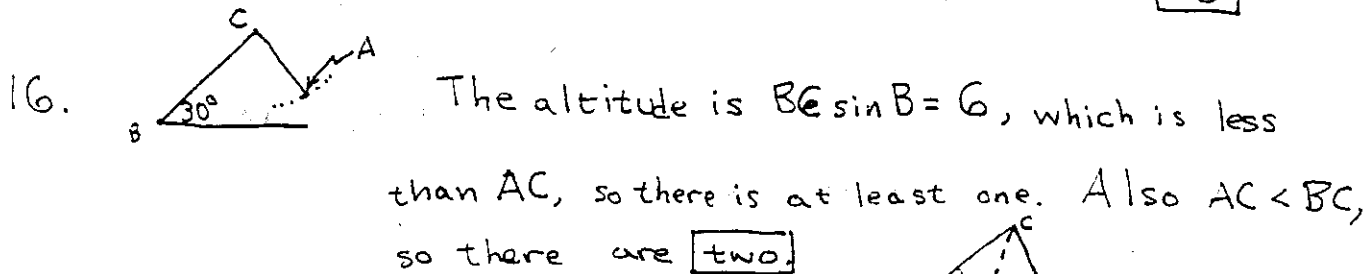 C
A
16.
30°
B
The altitude is BC sin B = 6, which is less
than AC, so there is at least one. Also AC < BC,
so there are two.
C